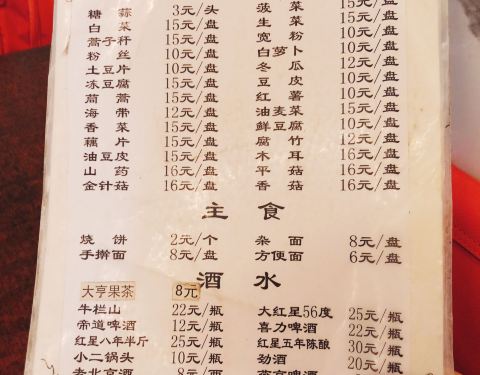 糖蒜 3元/头 菠菜 15元/盘
白菜 15元/盘 生菜 15元/盘
蒿子秆 15元/盘 宽粉 10元/盘
粉丝 10元/盘 白萝卜 10元/盘
土豆片 10元/盘 冬瓜 12元/盘
冻豆腐 10元/盘 豆皮 10元/盘
茼蒿 15元/盘 红薯 10元/盘
海带 12元/盘 油麦菜 15元/盘
香菜 15元/盘 鲜豆腐 10元/盘
藕片 15元/盘 腐竹 12元/盘
油豆皮 15元/盘 木耳 16元/盘
山药 16元/盘 平菇 16元/盘
金针菇 16元/盘 香菇 16元/盘
主食
烧饼 2元/个 杂面 8元/盘
手擀面 8元/盘 方便面 6元/盘
酒水
大亨果茶 8元
牛栏山 22元/瓶 大红星56度 25元/瓶
帝道啤酒 12元/瓶 喜力啤酒 22元/瓶
红星八年半斤 25元/瓶 红星五年陈酿 30元/瓶
小二锅头 10元/瓶 劲酒 20元/瓶
老北京酒 8元/ 燕京啤酒